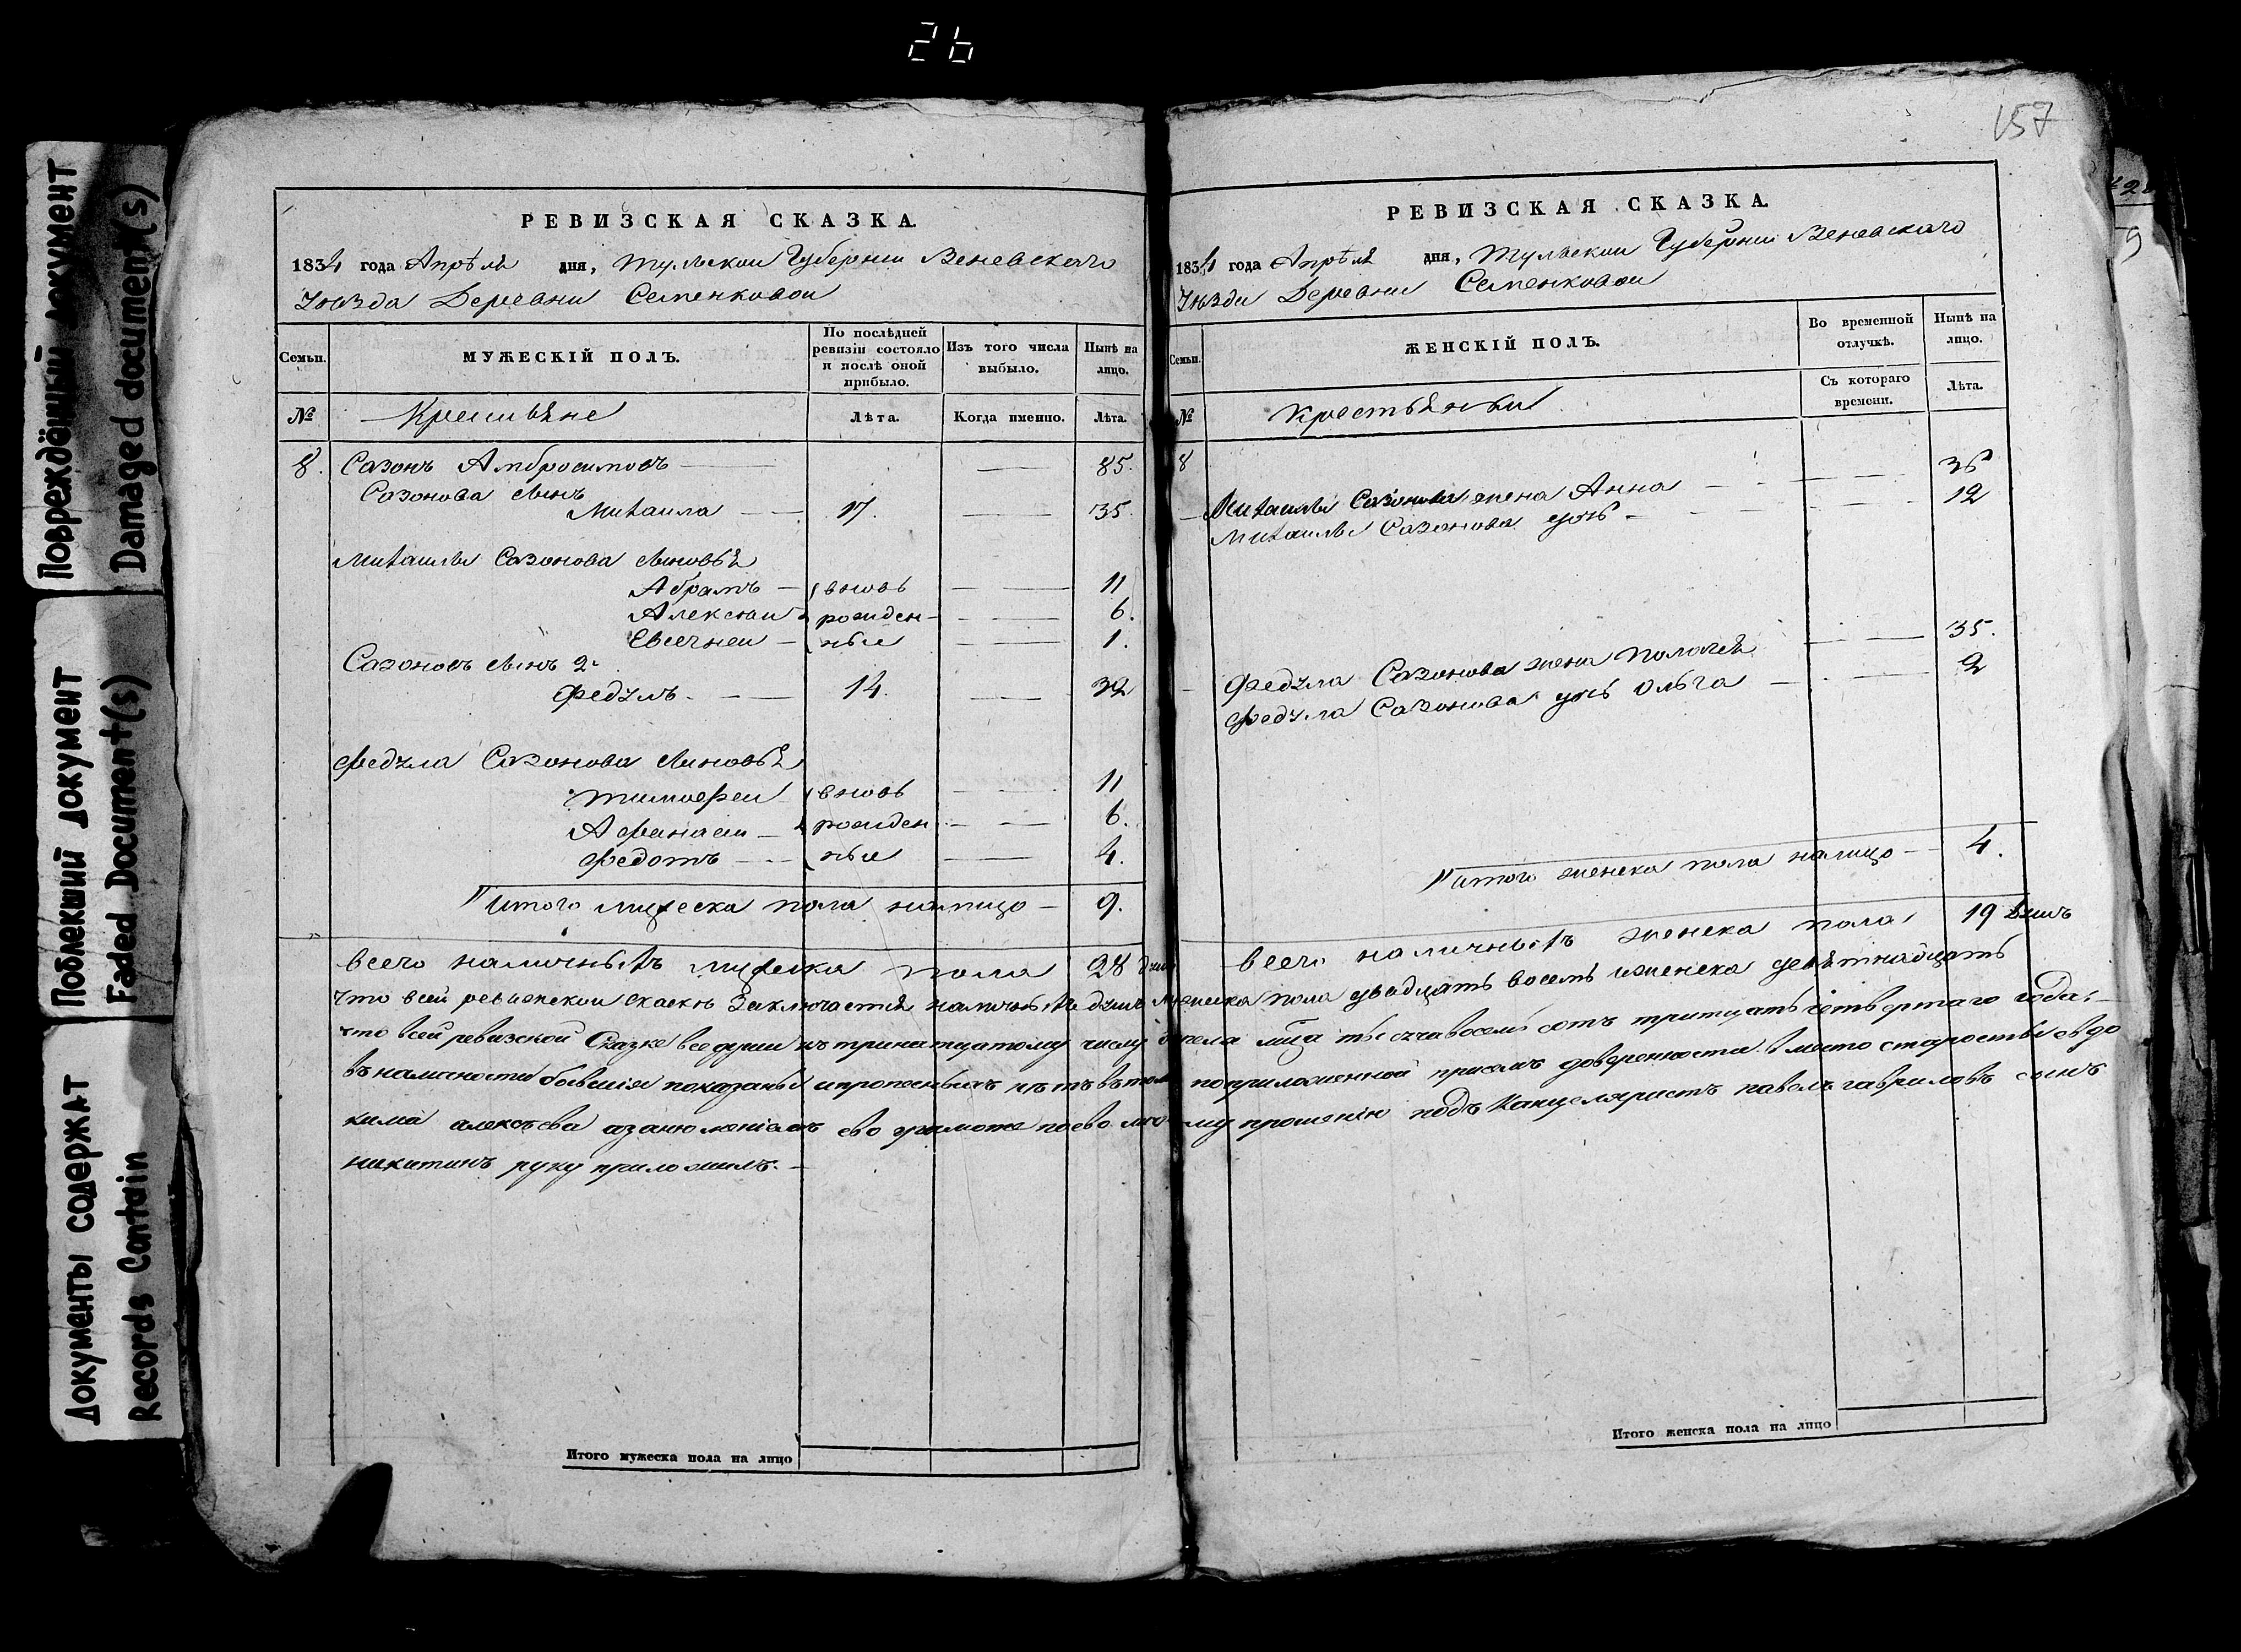 26
157
Повреждённый документ
Damaged document(s)
Поблекший документ
Faded Document(s)
Документы содержат
Records Contain
РЕВИЗСКАЯ СКАЗКА.
1834 года Апрѣля дня, Тульской Губернии Веневскаго
Уѣзда Деревни Семенковой
Семьи.
МУЖЕСКІЙ ПОЛЪ.
По послѣдней ревизіи состояло и послѣ оной прибыло.
Изъ того числа выбыло.
Нынѣ на лицо.
№
Крестьяне
Лѣта.
Когда именно.
Лѣта.
8. Сазонъ Амбросимовъ 85.
Сазонова сынъ
Михаила 17. 35.
Михаилы Сазонова сыновья
Абрамъ вновь 11
Алексѣи рожден- 6.
Евсечнеи ные 1.
Сазоновъ сынъ 2й
Федулъ 14. 32
Федула Сазонова сыновья
Тимофеи вновь 11
Афанаси рожден 6.
Федотъ ные 4.
Итого мужеска пола налицо 9.
всего наличныхъ мужеска пола 28 душъ
РЕВИЗСКАЯ СКАЗКА.
1834 года Апрѣля дня, Тульской Губернии Веневскаго
Уѣзда Деревни Семенковой
Семьи.
ЖЕНСКІЙ ПОЛЪ.
Во временной отлучкѣ.
Нынѣ на лицо.
Съ котораго времени.
Лѣта.
№
Крестьянки
8
Михаилы Сазонова жена Анна 36
Михаилы Сазонова дочь 12
Федула Сазонова жена Палагея 35.
Федула Сазонова дочь Ольга 2
Итого женска пола налицо 4.
всего наличныхъ женска пола 19 душъ
что всей ревизской скаске Заключается наличныхъ душъ мужеска пола двадцать восемь иженска девятнадцать
что всей ревизской Сказке все души къ тринатцатому числу апреля тысячавосемь сотъ тритцать четвертаго года
въ наличности бывшія показаны ипрописныхъ нѣтъ вътом поприложенной присемъ доверенности вместо старосты евдо
кима алексѣева азанеумѣніемъ ево грамоте поево личному прошенію подъ Канцеляристъ павелъ гавриловъ сынъ
никитинъ руку приложилъ.
Итого мужеска пола на лицо
Итого женска пола на лицо